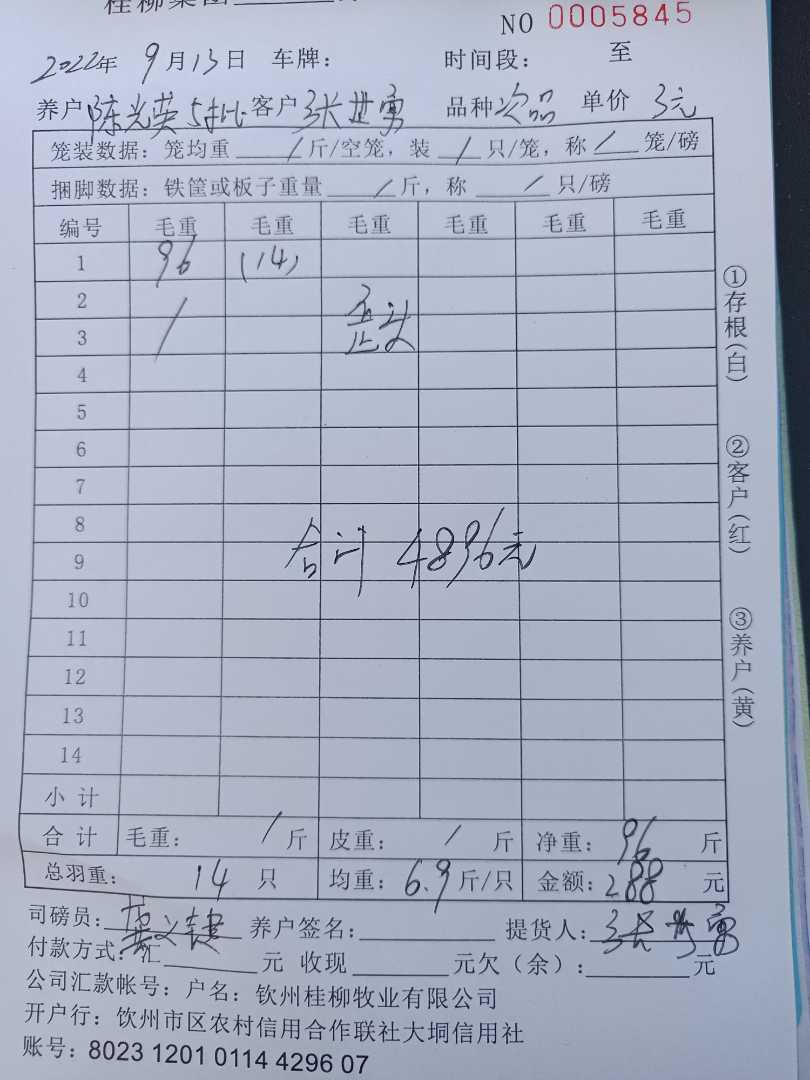 桂柳集团
NO 0005845
2022年 9月13日 车牌： 时间段： 至
养户 陈光英 5批 客户 张世勇 品种 次品 单价 3元
笼装数据：笼均重 / 斤/空笼，装 / 只/笼，称 / 笼/磅
捆脚数据：铁筐或板子重量 / 斤，称 / 只/磅
编号 毛重 毛重 毛重 毛重 毛重 毛重
1 96 (14)
2
3 /
4
5
6
7
8
9
合计 4896元
10
11
12
13
14
小计
合计 毛重： / 斤 皮重： / 斤 净重： 96 斤
总羽重： 14 只 均重： 6.9 斤/只 金额： 288 元
司磅员： 养户签名： 提货人： 张世勇
付款方式：汇 元 收现 元欠（余）： 元
公司汇款帐号：户名：钦州桂柳牧业有限公司
开户行：钦州市区农村信用合作联社大垌信用社
账号：8023 1201 0114 4296 07
①存根（白） ②客户（红） ③养户（黄）